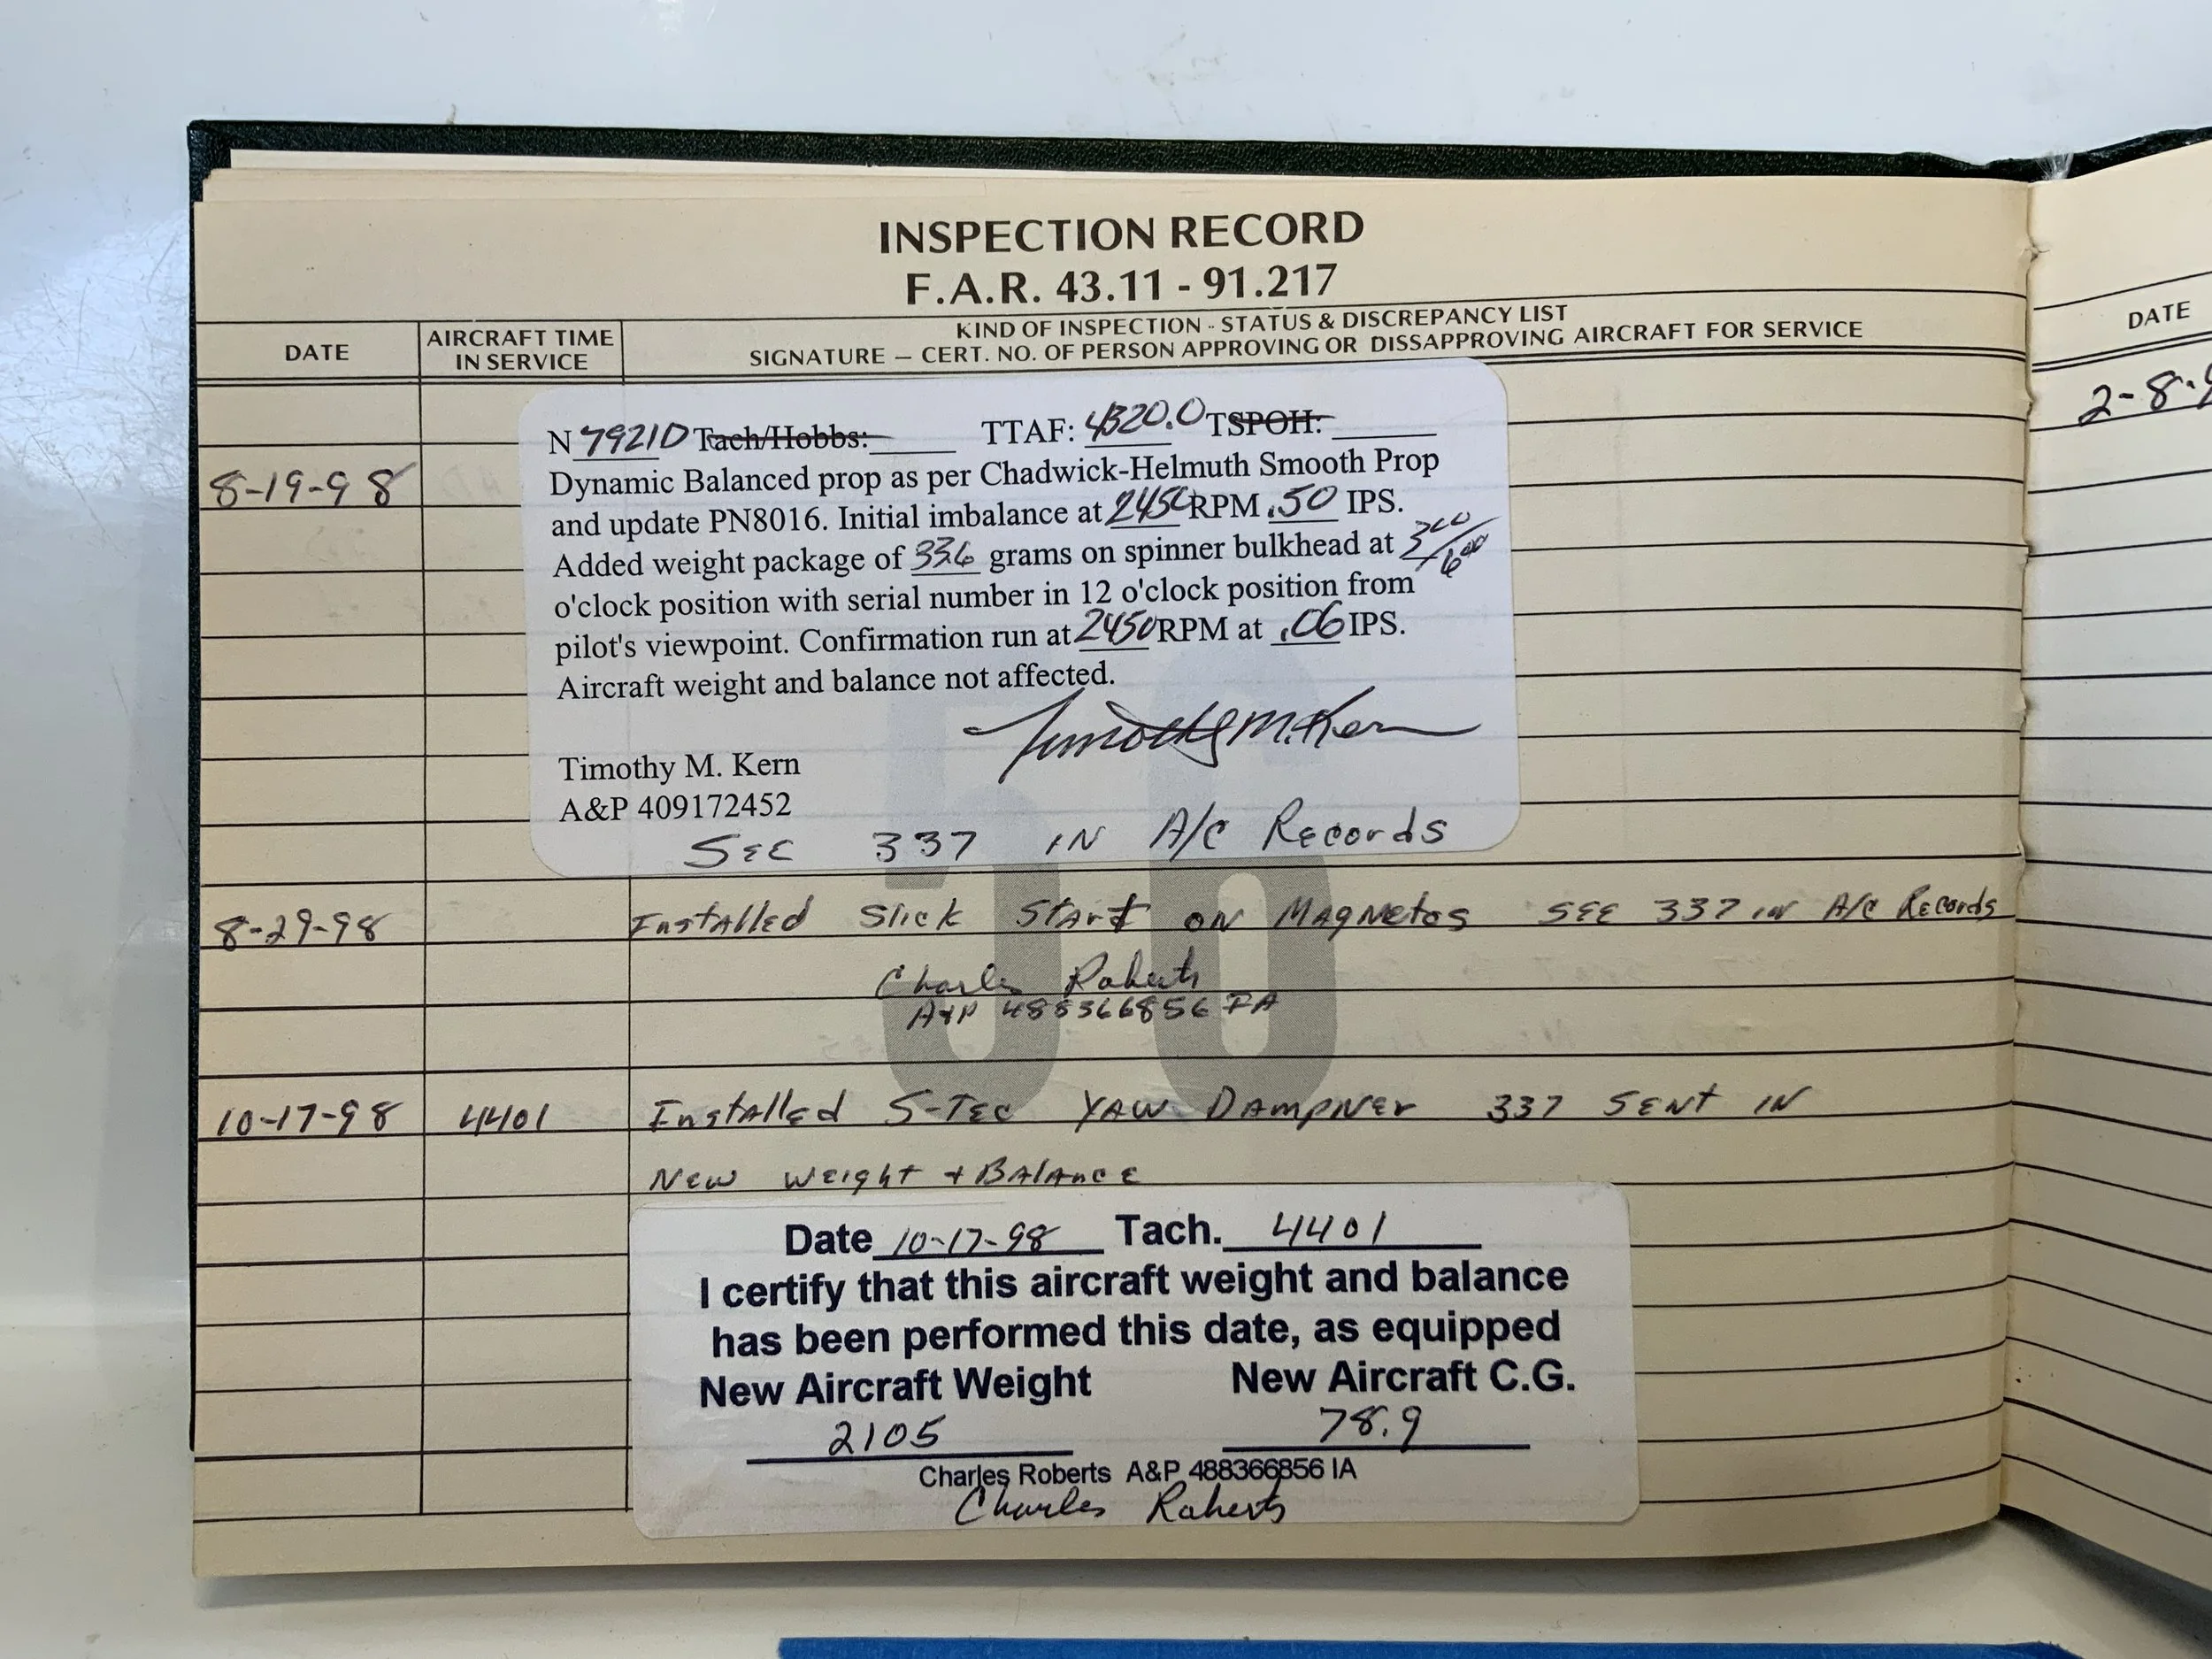 INSPECTION RECORD
F.A.R. 43.11 - 91.217
DATE
AIRCRAFT TIME
IN SERVICE
KIND OF INSPECTION - STATUS & DISCREPANCY LIST
SIGNATURE — CERT. NO. OF PERSON APPROVING OR DISSAPPROVING AIRCRAFT FOR SERVICE
8-19-98
N 7921D Tach/Hobbs: TTAF: 4320.0 TSPOH:
Dynamic Balanced prop as per Chadwick-Helmuth Smooth Prop
and update PN8016. Initial imbalance at 2450 RPM .50 IPS.
Added weight package of 33.6 grams on spinner bulkhead at 300/600
o'clock position with serial number in 12 o'clock position from
pilot's viewpoint. Confirmation run at 2450 RPM at .06 IPS.
Aircraft weight and balance not affected.
Timothy M. Kern
Timothy M. Kern
A&P 409172452
SEE 337 IN A/C Records
8-29-98 Installed Slick Start ON MAgNetos SEE 337 in A/C Records
Charles Roberts
A&P 488366856 IA
10-17-98 4401 Installed S-TEC YAW DAmpNer 337 SENT IN
New Weight + BAlAnce
Date 10-17-98 Tach. 4401
I certify that this aircraft weight and balance
has been performed this date, as equipped
New Aircraft Weight New Aircraft C.G.
2105 78.9
Charles Roberts A&P 488366856 IA
Charles Roberts
DATE
2-8-9
56